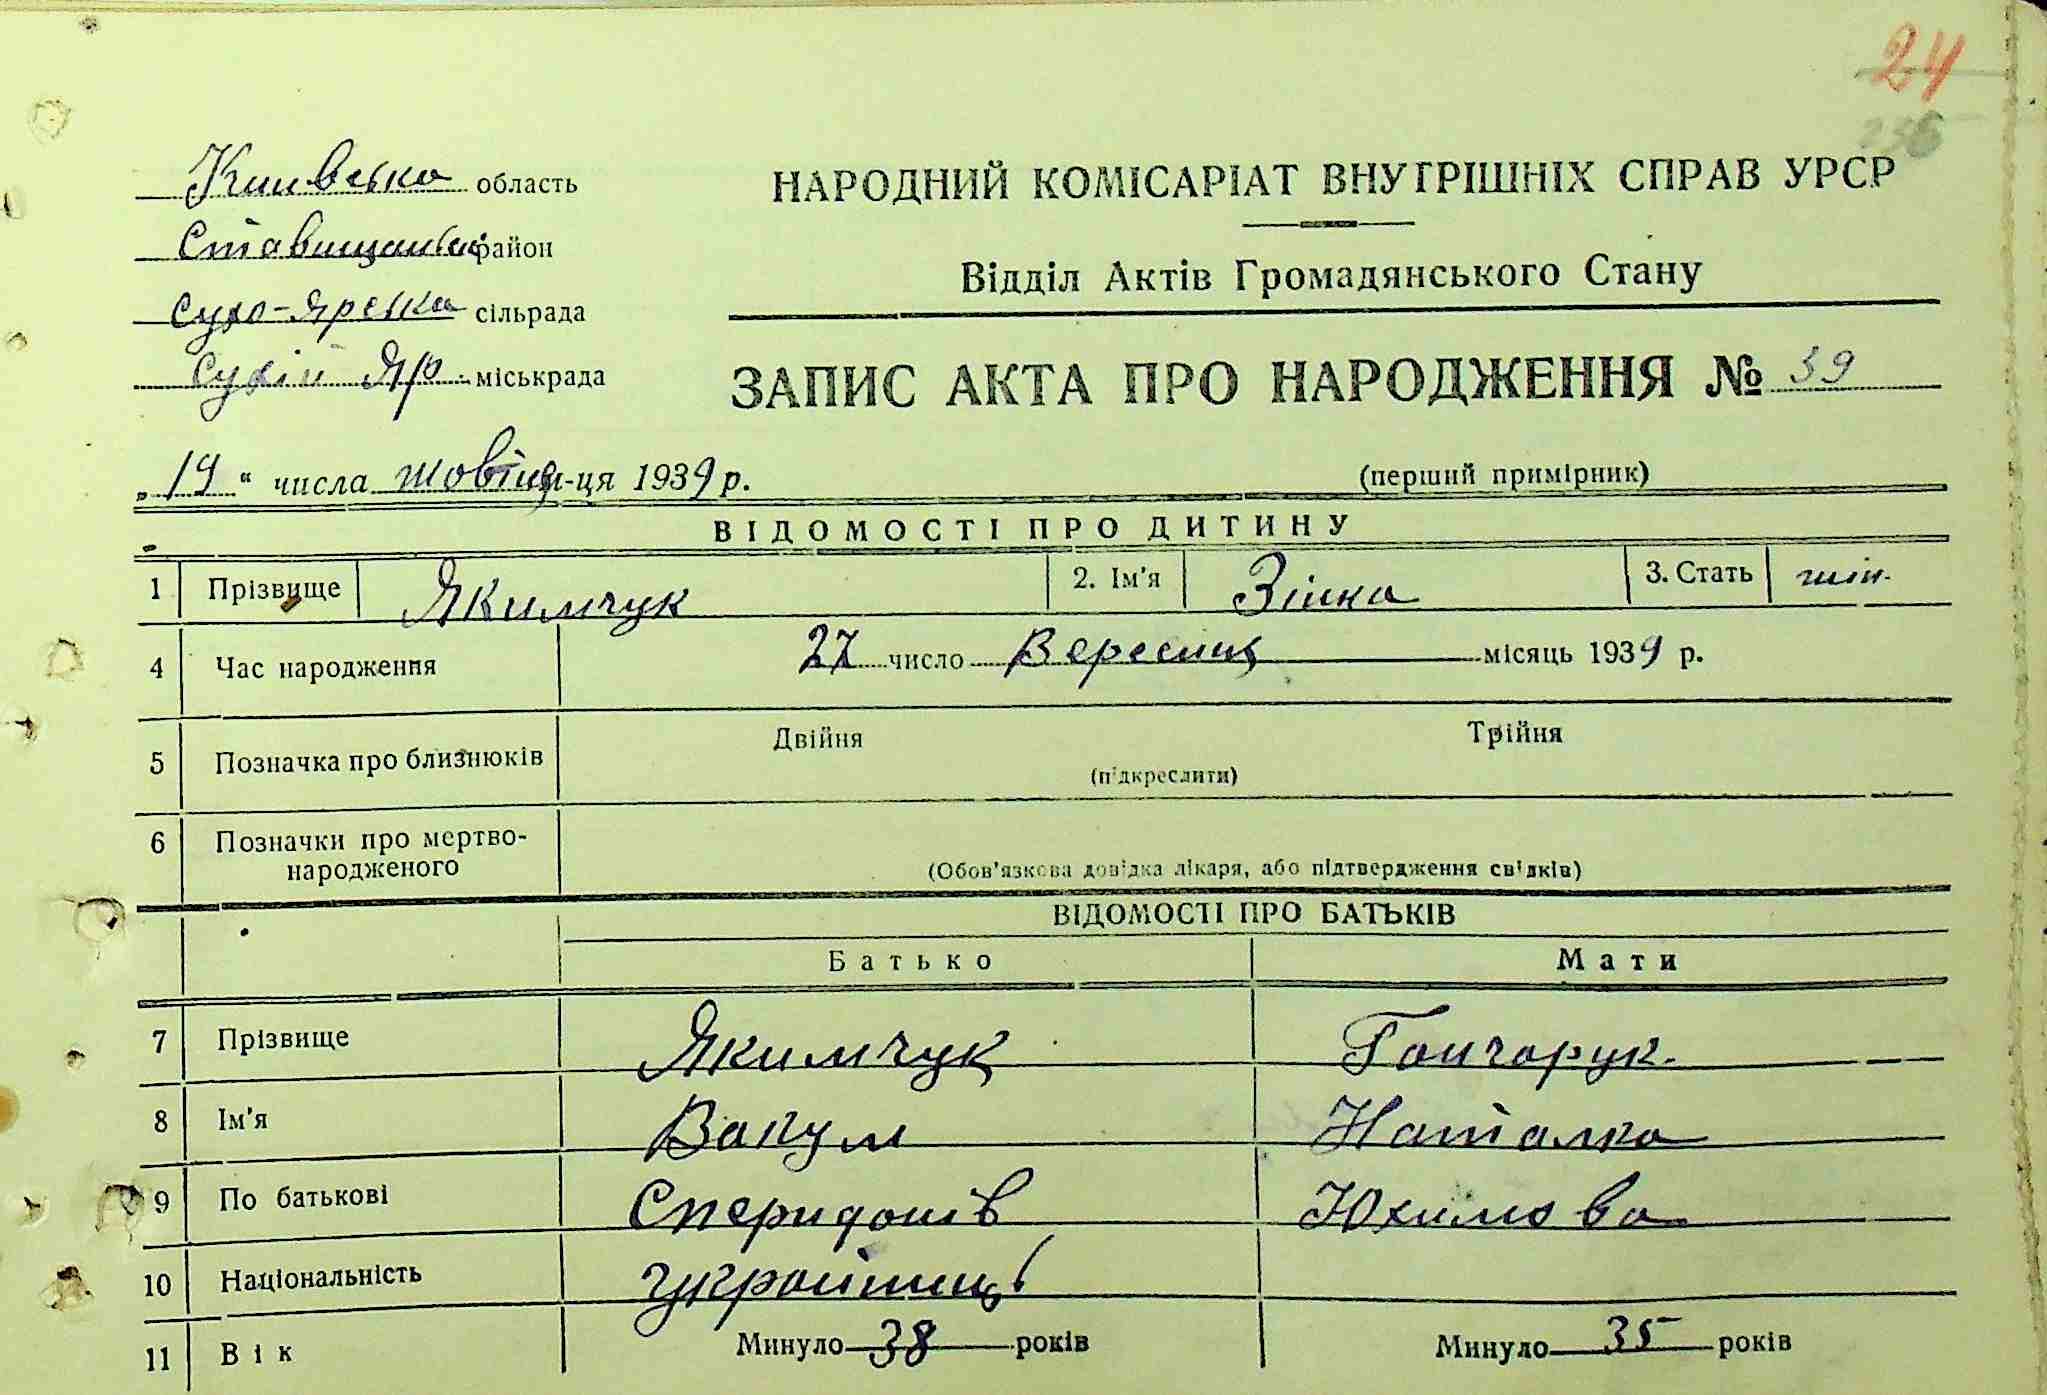 24
Київська область
Ставищанськ район
Сухо-Ярська сільрада
Сухій Яр міськрада
НАРОДНИЙ КОМІСАРІАТ ВНУТРІШНІХ СПРАВ УРСР
Відділ Актів Громадянського Стану
ЗАПИС АКТА ПРО НАРОДЖЕННЯ № 39
„19“ числа жовтня м-ця 1939 р.
(перший примірник)
ВІДОМОСТІ ПРО ДИТИНУ
1 Прізвище Якимчук 2. Ім'я Зінка 3. Стать жін.
4 Час народження 27 число Вересень місяць 1939 р.
5 Позначка про близнюків Двійня Трійня
(підкреслити)
6 Позначки про мертво-
народженого
(Обов'язкова довідка лікаря, або підтвердження свідків)
ВІДОМОСТІ ПРО БАТЬКІВ
Батько Мати
7 Прізвище Якимчук Гончарук.
8 Ім'я Вакум Наталка
9 По батькові Сперидонів Юхимова
10 Національність українці
11 Вік Минуло 38 років Минуло 35 років